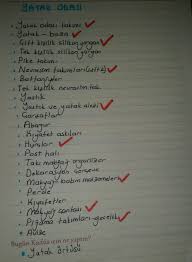 YATAK ODASI
Yatak odası takımı
Yatak - baza
Çift kişilik silikon yorgan
Tek kişilik silikon yorgan
Pike takımı
Nevresim takımları
Battaniyeler
Tek kişilik nevresim tak.
Yastık
Yastık ve yatak alezi
Çarşaflar
Abajur
Kıyafet askıları
Hurçlar
Post halı
Takı makyaj organizer
Dekorasyon
Makyaj bakım malzemeleri
Perde
Kıyafetler
Makyaj çantası
Pijama takımları gecelik
Avize
Bugün Kadas için ne yaptım?
Yatak örtüsü